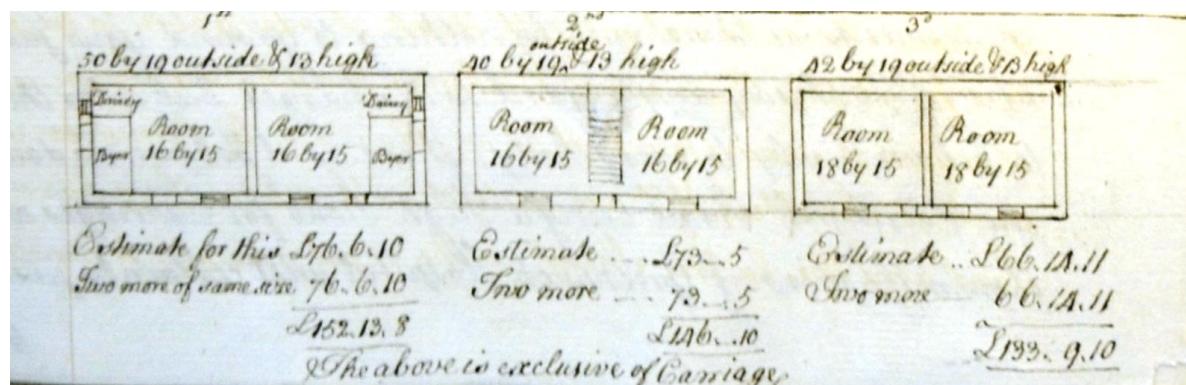 1st
50 by 19 outside & 13 high
Dairy
Byer
Room
16 by 15
Room
16 by 15
Dairy
Byer
Estimate for this £76.6.10
Two more of same size 76.6.10
£152.13.8
2nd
outside
40 by 19 & 13 high
Room
16 by 15
Room
16 by 15
Estimate .... £73..5
Two more .... 73..5
£146..10
3d
42 by 19 outside & 13 high
Room
18 by 15
Room
18 by 15
Estimate .. £66.14.11
Two more 66.14.11
£133.9.10
The above is exclusive of Carriage